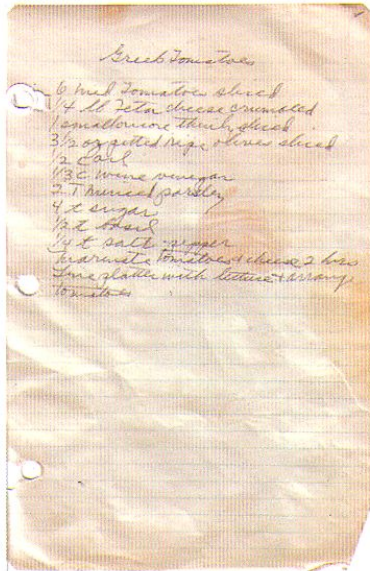 Greek Tomatoes
6 med Tomatoes sliced
1/4 lb Feta cheese crumbled
1 small onion thinly sliced
3 1/2 oz pitted ripe olives sliced
1/2 c oil
1/3 c wine vinegar
2 T minced parsley
4 t sugar
1/2 t basil
1/4 t salt - pepper
Marinate Tomatoes + cheese 2 hrs
Line platter with lettuce + arrange
tomatoes